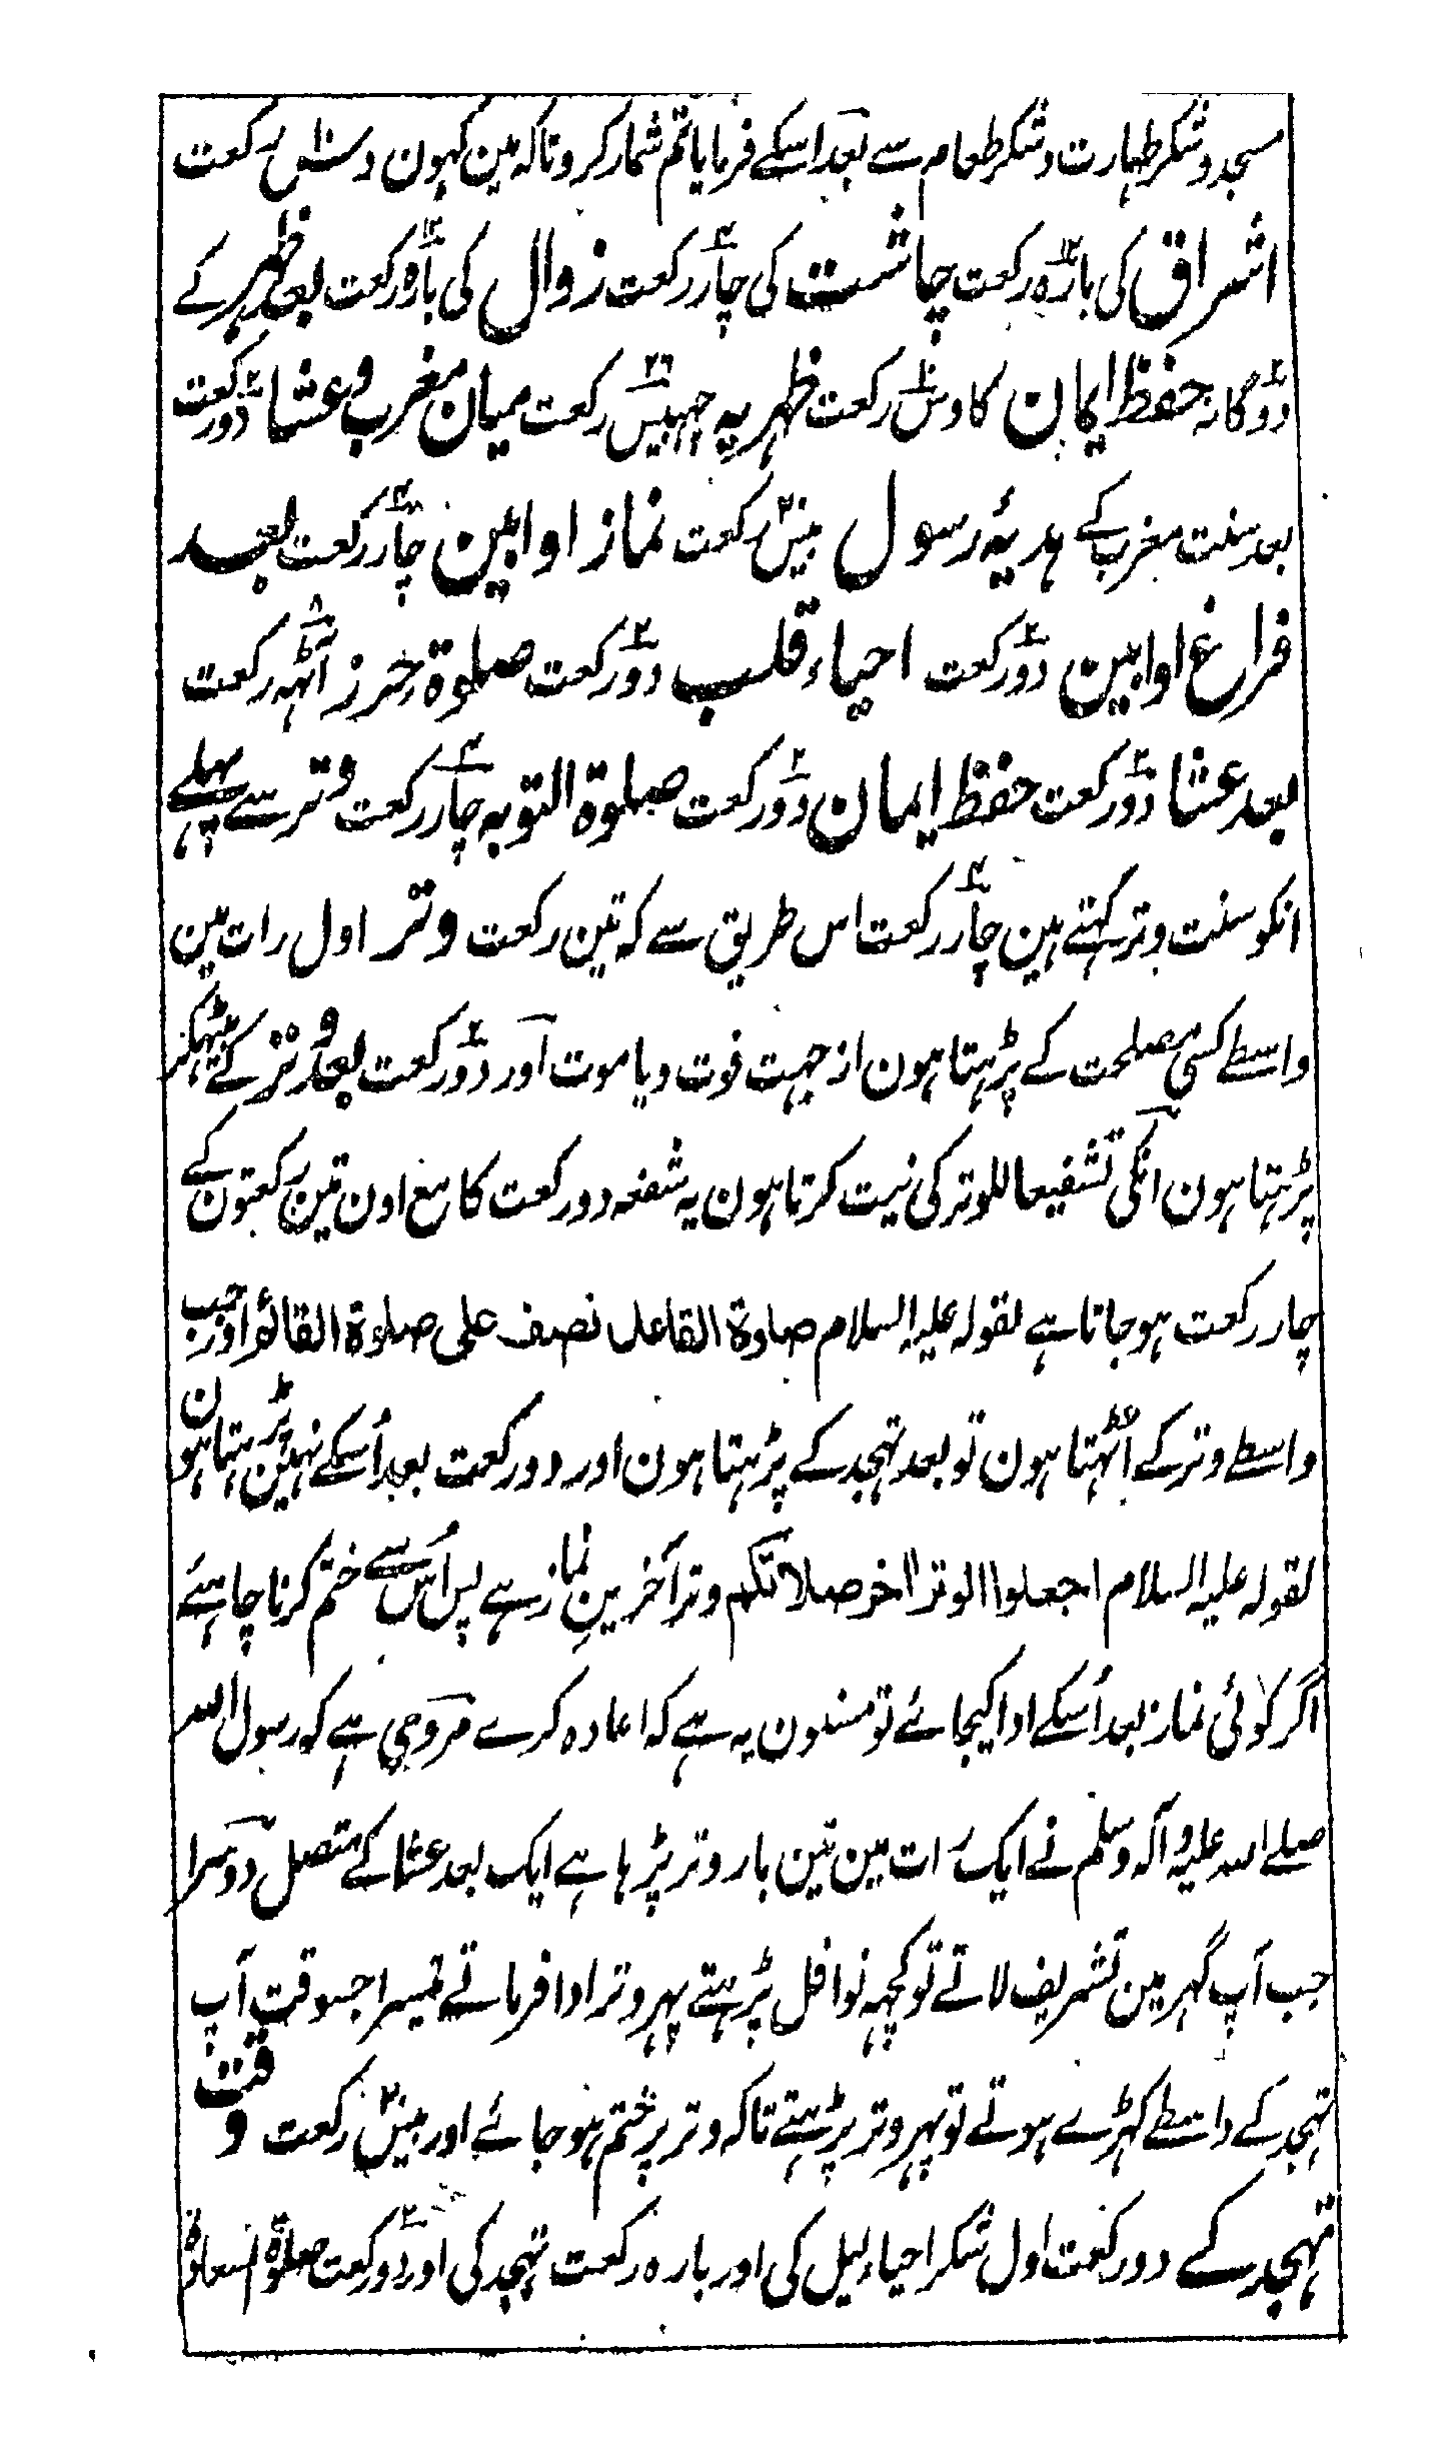 مسجد و شکر طہارت و شکر طعام سے بعد اسکے فرمایا تم شمار کرو تاکہ مین کہون دس۱۰ رکعت
اشراق کی بارہ۱۲ رکعت چاشت کی چار۴ رکعت زوال کی بارہ۱۲ رکعت بعد ظہر کے
دو۲گانہ حفظ ایمان کا دس۱۰ رکعت ظہریہ چہبیس۲۶ رکعت میان مغرب و عشا دو۲رکعت
بعد سنت مغرب کے ہدیۂ رسول بیس۲۰ رکعت نماز اوابین چار۴ رکعت بعد
فراغ اوابین دو۲رکعت احیاء قلب دو۲رکعت صلوۃ حرز آٹہہ۸ رکعت
بعد عشا دو۲رکعت حفظ ایمان دو۲رکعت صلوۃ التوبہ چار۴ رکعت وتر سے پہلے
انکو سنت وتر کہتے ہین چار۴ رکعت اس طریق سے کہ تین رکعت وتر اول رات مین
واسطے کسی مصلحت کے پڑہتا ہون از جہت فوت و یا موت اور دو۲رکعت بعد وتر کے بیٹہکر
پڑہتا ہون انکی تشفیعا للوتر کی نیت کرتا ہون یہ شفعہ دو رکعت کا مع اون تین رکعتون کے
چار رکعت ہو جاتا ہے لقولہ علیہ السلام صلوۃ القاعد نصف علی صلوۃ القائم اور جب
واسطے وتر کے اُٹہتا ہون تو بعد تہجد کے پڑہتا ہون اور دو رکعت بعد اُسکے نہین پڑہتا ہون
لقولہ علیہ السلام اجعلوا الوتر اٰخر صلاتکم وتر آخرین نماز ہے پس اُس سے ختم کرنا چاہئے
اگر کوئی نماز بعد اُسکے ادا کیجائے تو مسنون یہ ہے کہ اعادہ کرے مروی ہے کہ رسول اللہ
صلے اللہ علیہ و آلہ وسلم نے ایک رات مین تین بار وتر پڑہا ہے ایک بعد عشا کے متصل دوسرا
جب آپ گہر مین تشریف لاتے تو کچہہ نوافل پڑہتے پہر وتر ادا فرماتے تیسرا جسوقت آپ
تہجد کے واسطے کہڑے ہوتے تو پہر وتر پڑہتے تاکہ وتر پر ختم ہو جائے اور بیس۲۰ رکعت وقت
تہجد کے دو رکعت اول شکر احیاء لیل کی اور بارہ رکعت تہجد کی اور دو۲رکعت صلوۃ السعادۃ